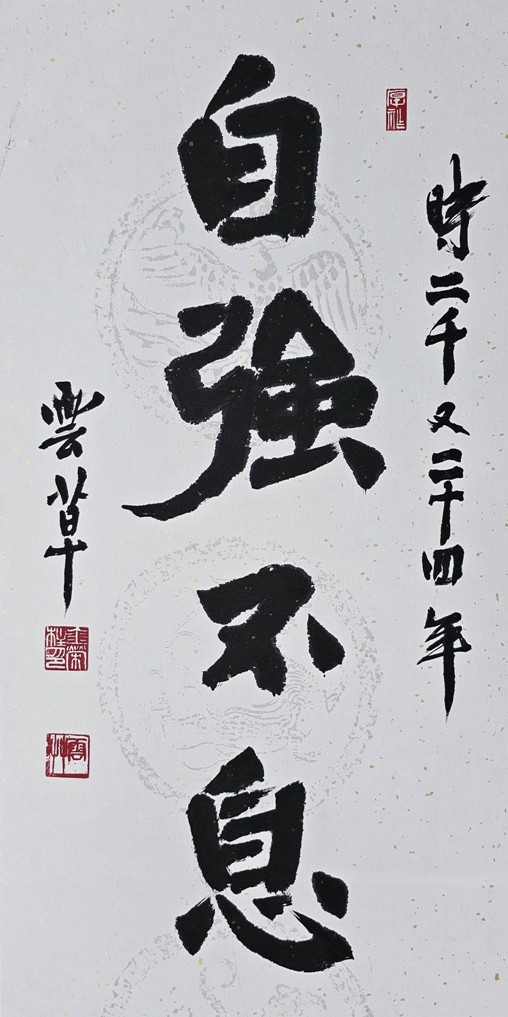 時二千又二十四年
自強不息
雲草